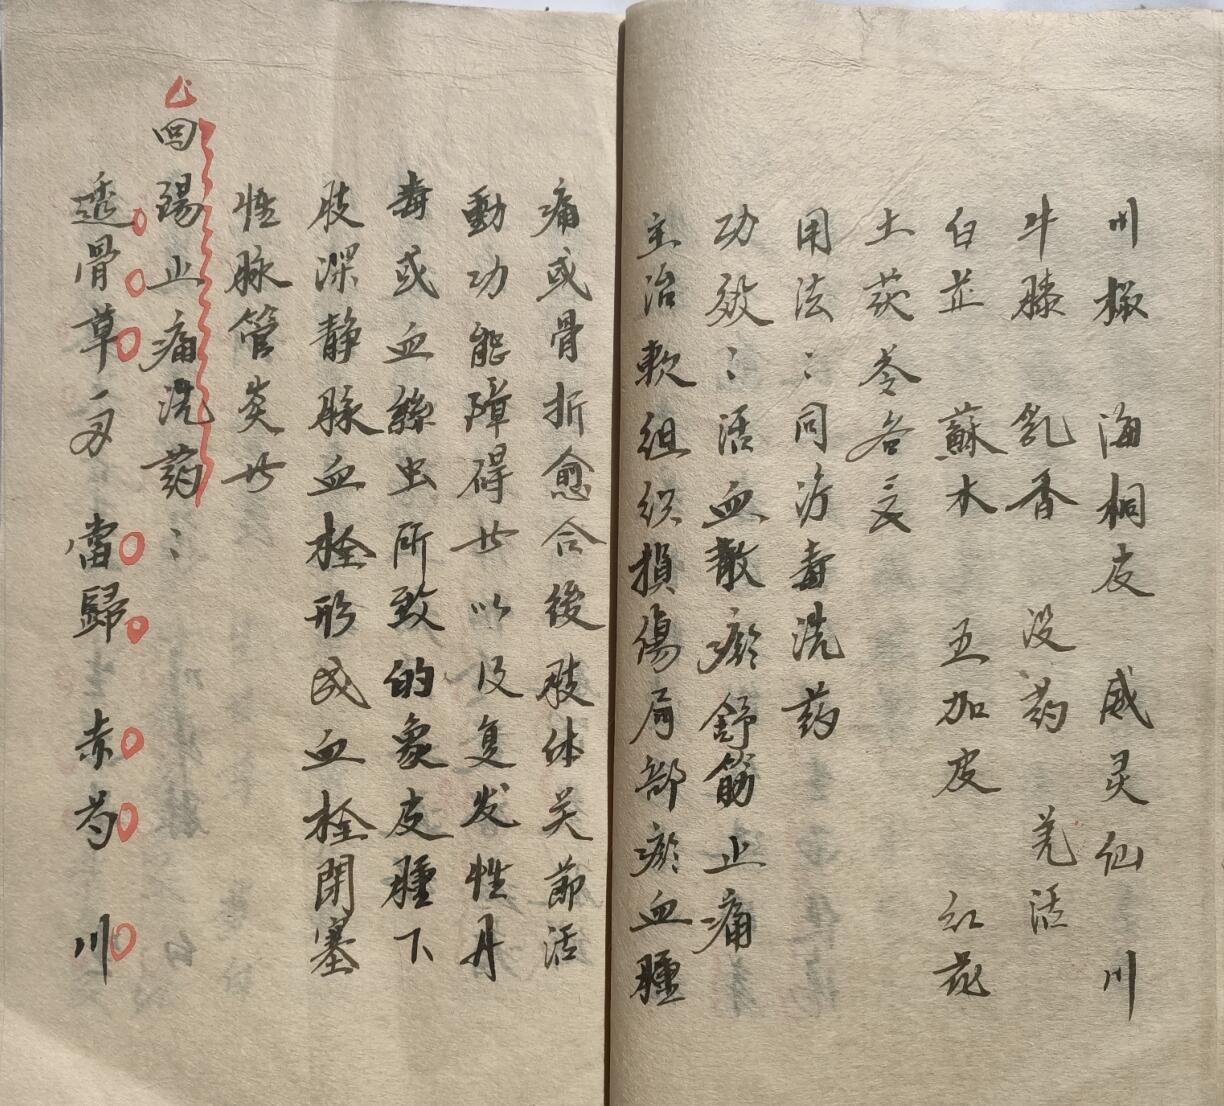 川椒 海桐皮 威灵仙 川
牛膝 乳香 没药 羌活
白芷 蘇木 五加皮 红花
土茯苓各三
用法：同治毒洗药
功效：活血散瘀舒筋止痛
主治軟组织損傷局部瘀血腫
痛或骨折愈合後肢体关節活
動功能障碍 以及复发性丹
毒或血絲虫所致的象皮腫下
肢深静脉血栓形成血栓閉塞
性脉管炎
回陽止痛洗药：
透骨草一 當歸 赤芍 川